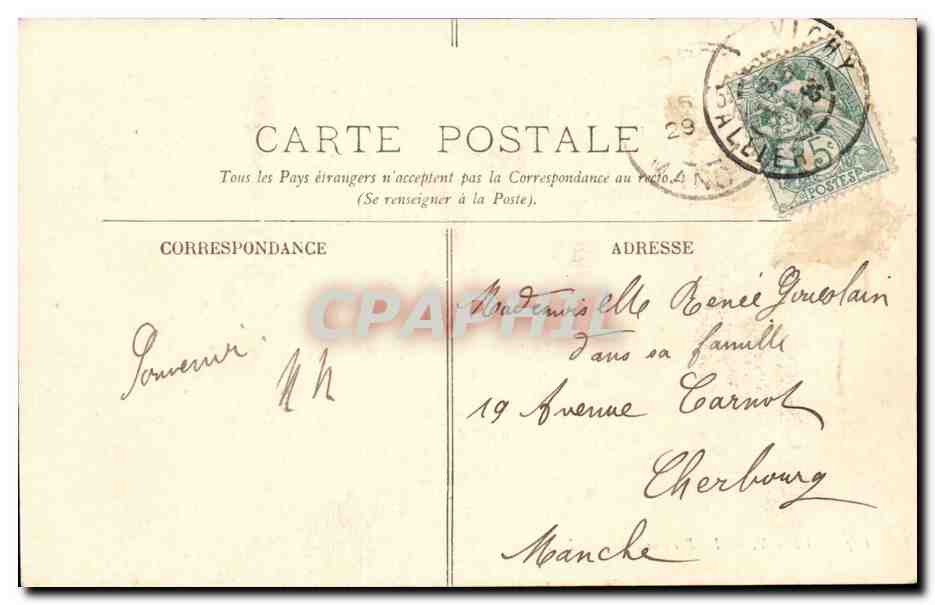 CARTE POSTALE
Tous les Pays étrangers n'acceptent pas la Correspondance au recto.
(Se renseigner à la Poste).
CORRESPONDANCE
ADRESSE
Souvenir
Mademoiselle Renée
dans sa famille
19 Avenue Carnot
Cherbourg
Manche
VICHY
ALLIER
5c
POSTES
29
CPAPHIL